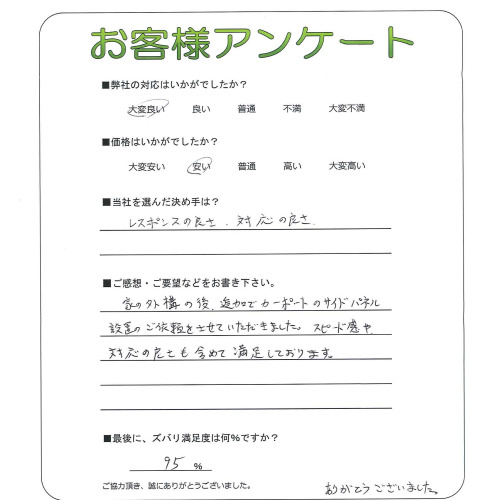 お客様アンケート
■弊社の対応はいかがでしたか？
大変良い 良い 普通 不満 大変不満
■価格はいかがでしたか？
大変安い 安い 普通 高い 大変高い
■当社を選んだ決め手は？
レスポンスの良さ．対応の良さ．
■ご感想・ご要望などをお書き下さい。
家の外構の後、追加でカーポートのサイドパネル
設置のご依頼をさせていただきました。スピード感や
対応の良さも含めて満足しております。
■最後に、ズバリ満足度は何％ですか？
95 %
ご協力頂き、誠にありがとうございました。
ありがとうございました。